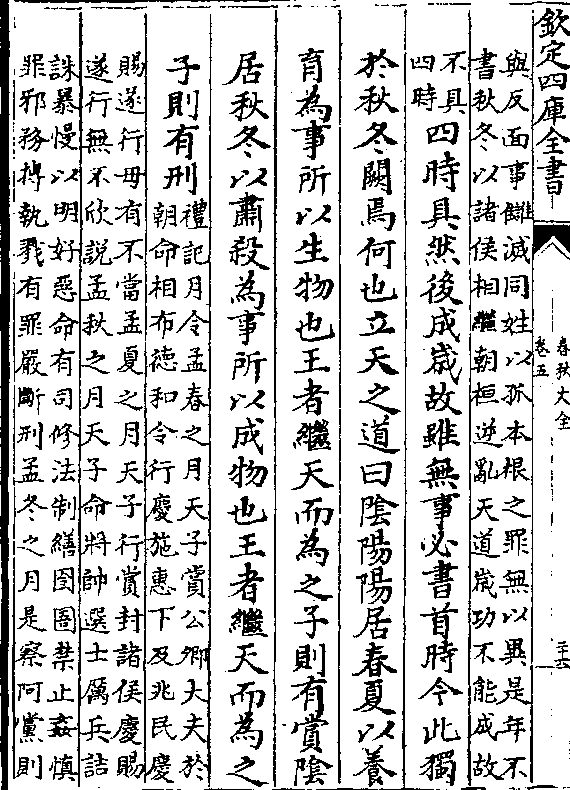 欽定四庫全書
春秋大全
卷五
與反面事讎滅同姓以孤本根之罪無以異是年不
書秋冬以諸侯相繼朝桓逆亂天道歲功不能成故
不具
四時
四時具然後成歲故雖無事必書首時今此獨
於秋冬闕焉何也立天之道曰陰陽陽居春夏以養
育為事所以生物也王者繼天而為之子則有賞陰
居秋冬以肅殺為事所以成物也王者繼天而為之
子則有刑
禮記月令孟春之月天子賞公卿大夫於
朝命相布德和令行慶施惠下及兆民慶
賜遂行毋有不當孟夏之月天子行賞封諸侯慶賜
遂行無不欣説孟秋之月天子命將帥選士厲兵詰
誅暴慢以明好惡命有司修法制繕囹圄禁止姦慎
罪邪務搏執戮有罪嚴斷刑孟冬之月是察阿黨則